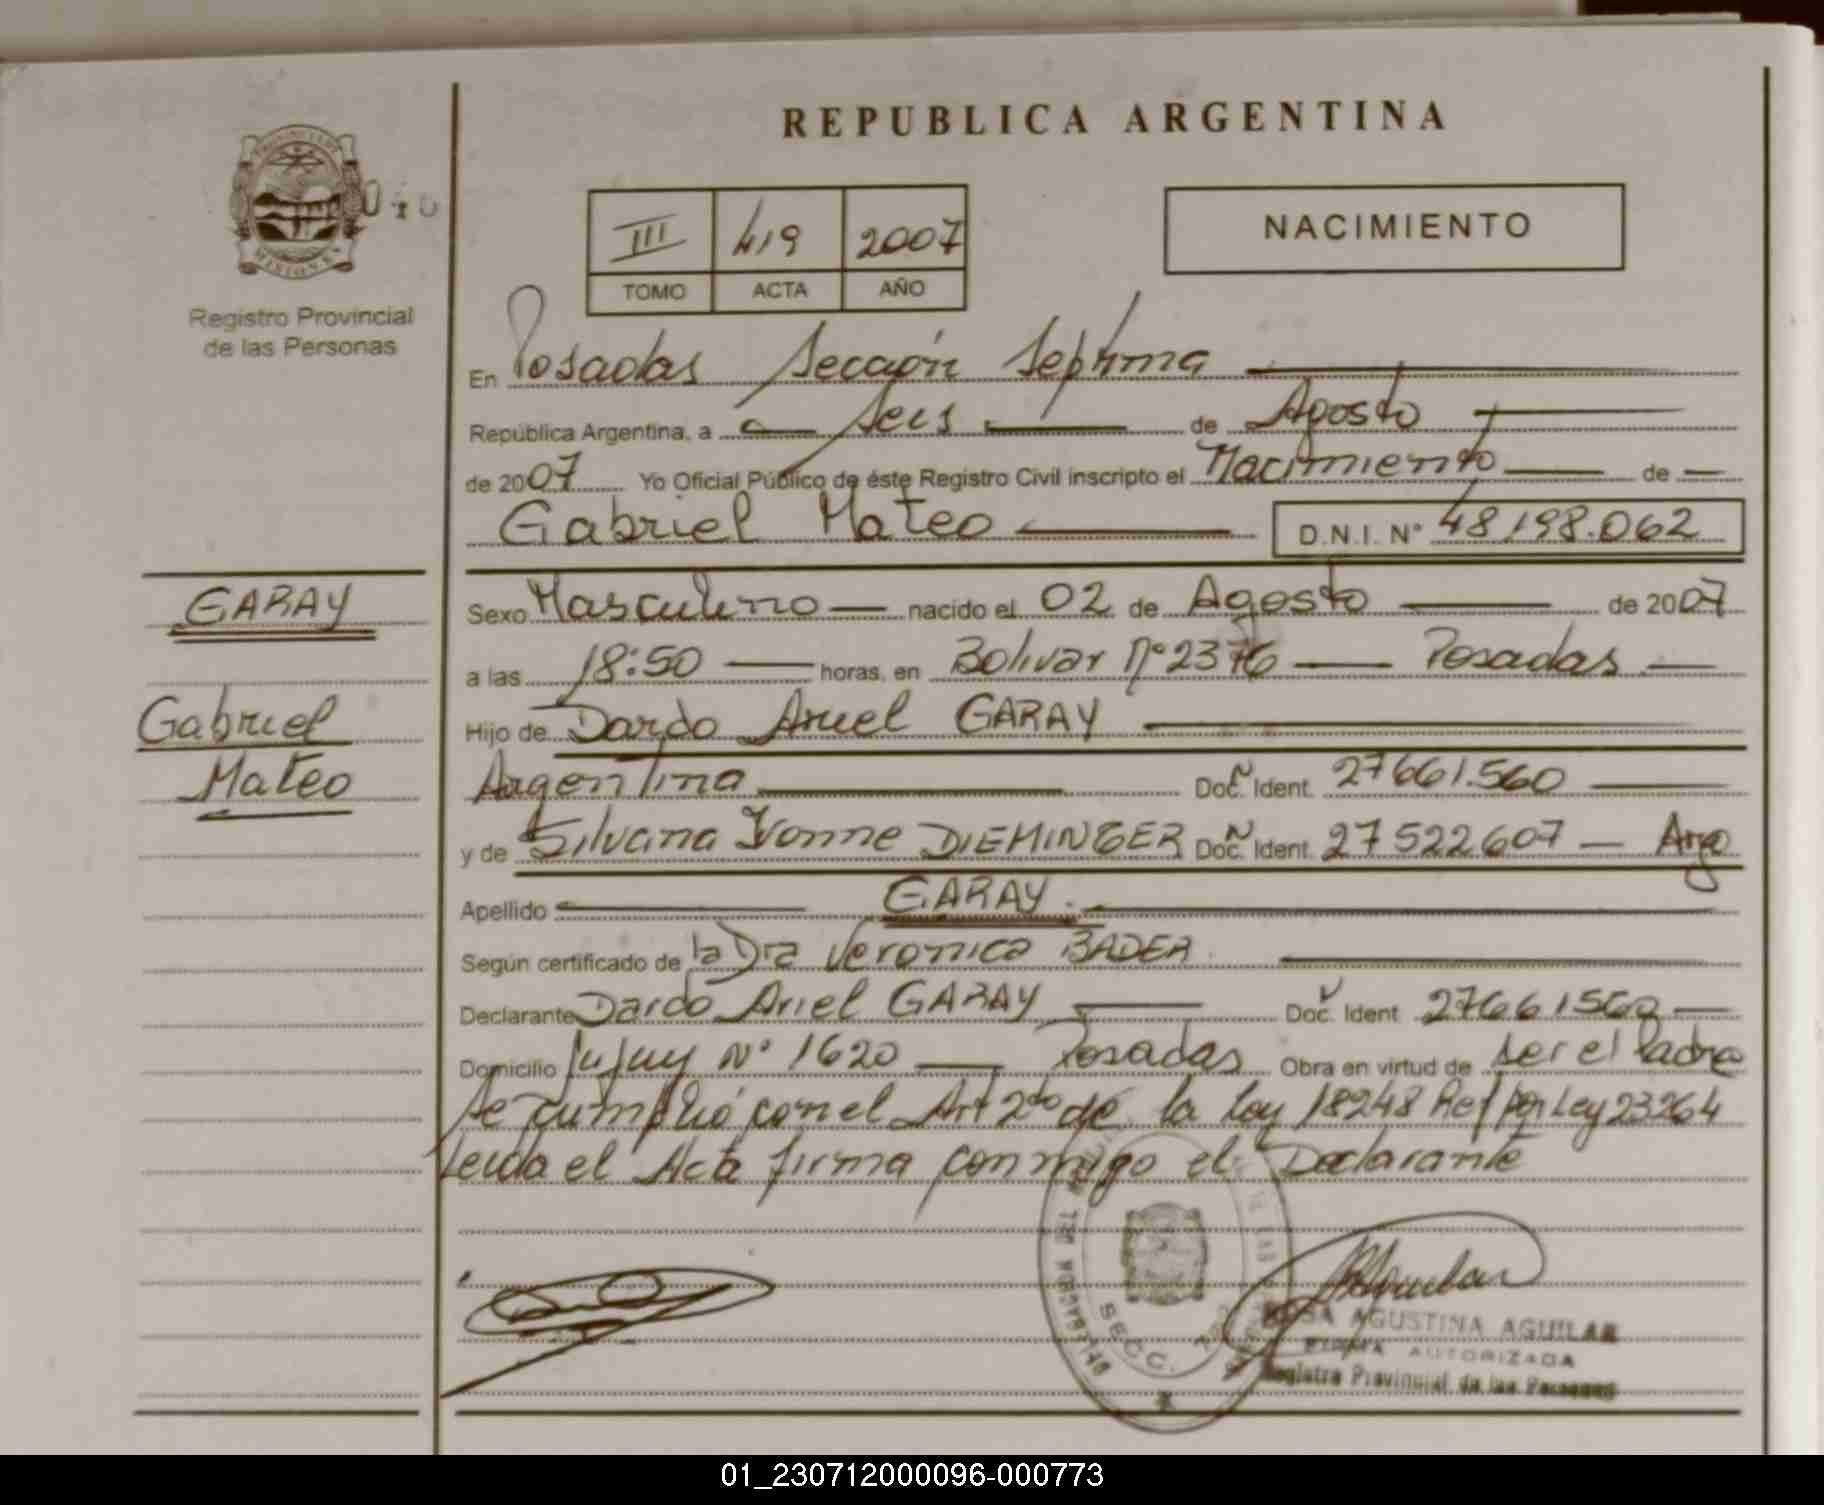 REPUBLICA ARGENTINA
PROVINCIA DE
MISIONES
Registro Provincial
de las Personas
III 419 2007
TOMO ACTA AÑO
NACIMIENTO
En Posadas Sección Septima
República Argentina, a Seis de Agosto
de 2007 Yo Oficial Público de éste Registro Civil inscripto el Nacimiento de
Gabriel Mateo D.N.I. N° 48198.062
GARAY
Gabriel
Mateo
Sexo Masculino nacido el 02 de Agosto de 2007
a las 18:50 horas, en Bolivar N° 2376 Posadas
Hijo de Dardo Ariel GARAY
Argentina Doc. Ident. 27661.560
y de Silvana Ivonne DIEMINGER Doc. Ident. 27522607 Arg
Apellido GARAY.
Según certificado de la Dra Veronica BADER
Declarante Dardo Ariel GARAY Doc. Ident. 27661560
Domicilio Jujuy N° 1620 Posadas Obra en virtud de ser el Padre
Se cumplió con el Art 2do de la Ley 18248 Ref por Ley 23264
Leida el Acta firma conmigo el Declarante
SECC.
ROSA AGUSTINA AGUILAR
FIRMA AUTORIZADA
Registro Provincial de las Personas
01_230712000096-000773